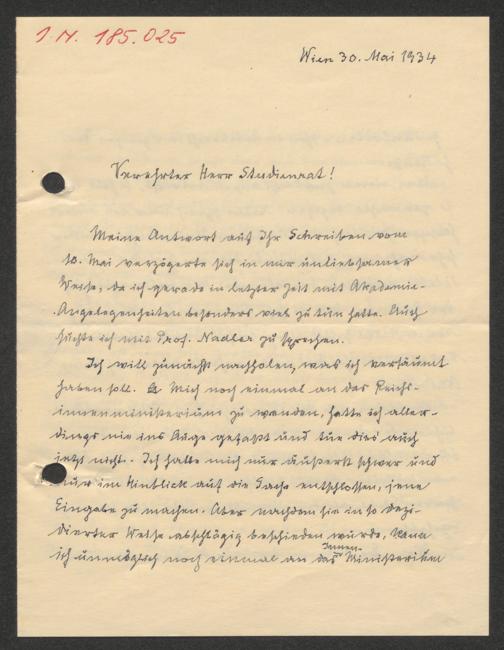 I.N. 185.025
Wien 30. Mai 1934
Verehrter Herr Studienrat!
Meine Antwort auf Ihr Schreiben vom
10. Mai verzögerte sich in mir unliebsamer
Weise, da ich gerade in letzter Zeit mit Akademie-
Angelegenheiten besonders viel zu tun hatte. Auch
suchte ich mit Prof. Nadler zu sprechen.
Ich will zunächst nachholen, was ich versäumt
haben soll. Mich noch einmal an das Reichs-
innenministerium zu wenden, hatte ich aller-
dings nie ins Auge gefaßt und tue dies auch
jetzt nicht. Ich hatte mich nur äußerst schwer und
nur im Hinblick auf die Sache entschlossen, jene
Eingabe zu machen. Aber nachdem sie in so dezi-
dierter Weise abschlägig beschieden wurde, kann
ich unmöglich noch einmal an das Innen-Ministerium